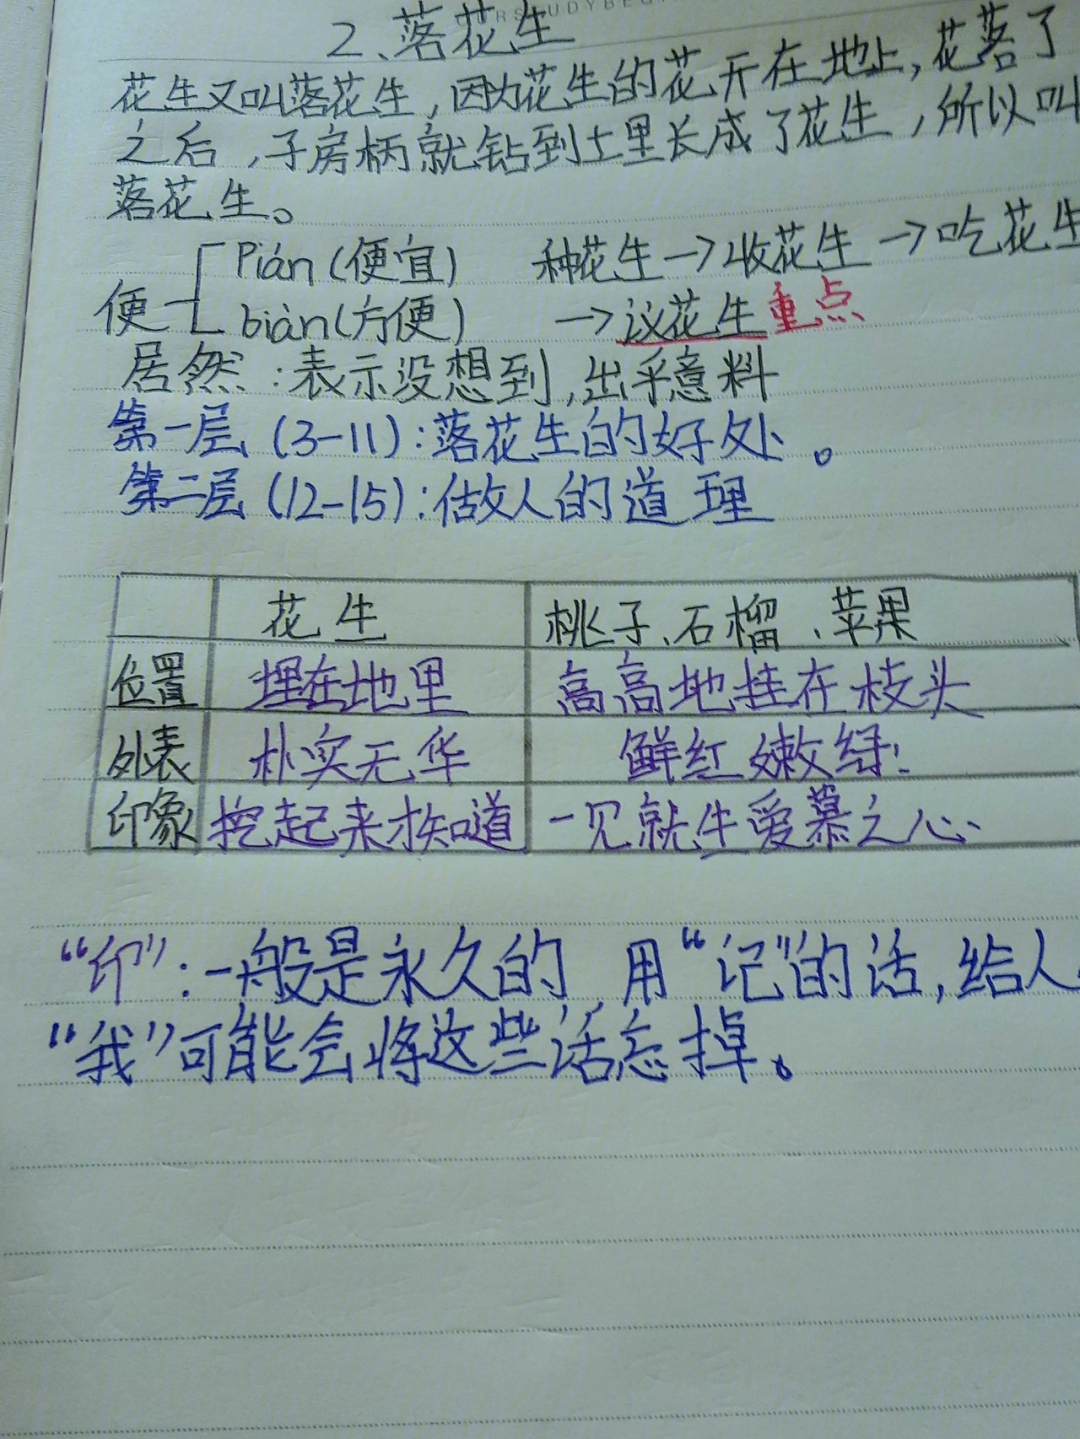 2、落花生
花生又叫落花生,因为花生的花开在地上,花落了
之后,子房柄就钻到土里长成了花生,所以叫
落花生。
便 Pián(便宜) 种花生→收花生→吃花生
biàn(方便) →议花生 重点
居然:表示没想到,出乎意料
第一层(3-11):落花生的好处。
第二层(12-15):做人的道理
花生 桃子、石榴、苹果
位置 埋在地里 高高地挂在枝头
外表 朴实无华 鲜红嫩绿
印象 挖起来才知道 一见就生爱慕之心
“印”:一般是永久的,用“记”的话,给人
“我”可能会将这些话忘掉。